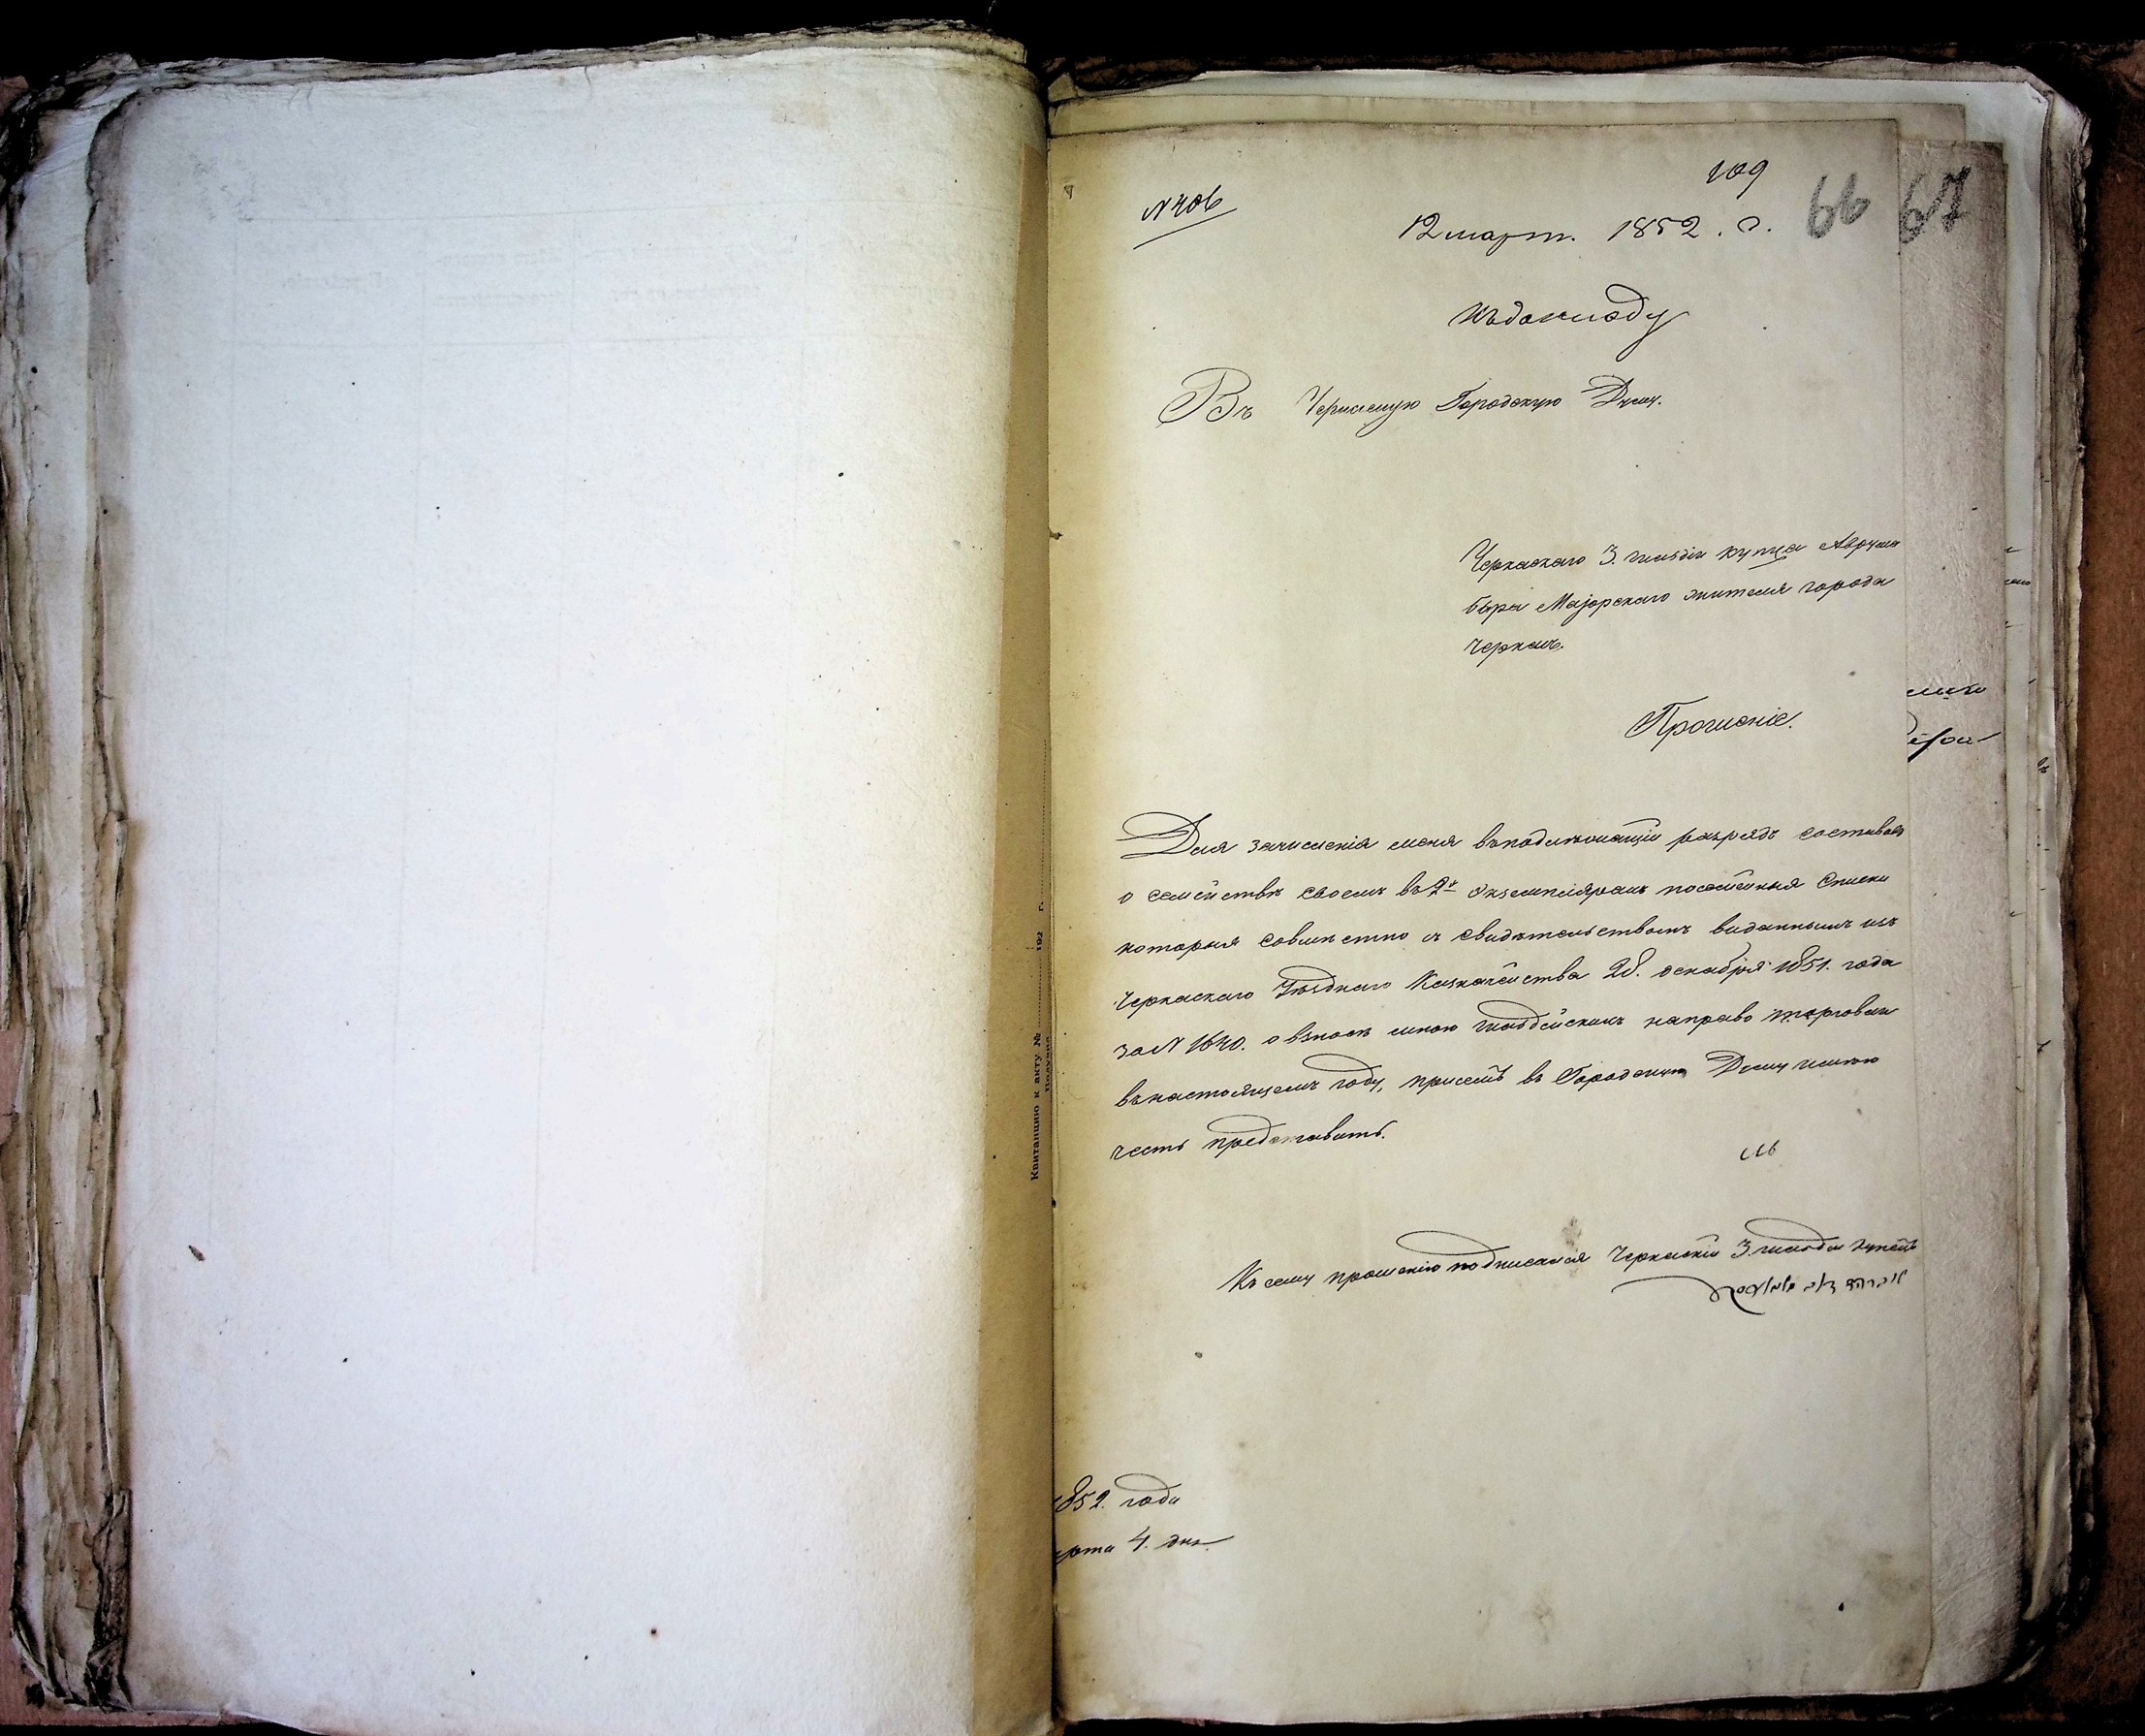 109
№ 406
66 67
12 март. 1852. г.
Къ докладу
Въ Черкаскую Городскую Думу.
Черкаскаго 3. гильдіи купца Аврума
Бера Маjорскаго жителя города
Черкасъ.
Прошеніе.
Для зачисленія меня в подлежащій разрядъ составивъ
о семействѣ своемъ въ 2хъ экземплярахъ посемейныя списки
которыя совместно съ свидѣтельствомъ виданнымъ изъ
Черкаскаго Уѣзднаго Казначейства 28. декабря 1851. года
за № 1640. о взносѣ мною гильдейскихъ на право торговли
въ настоящемъ году, присемъ въ Городскую Думу имѣю
честь представить.
Къ сему прошенію подписался Черкаскій 3 гильдіи купецъ
אברהם דוב
1852. года
арта 4. дня
Квитанцию к акту № 192 г.